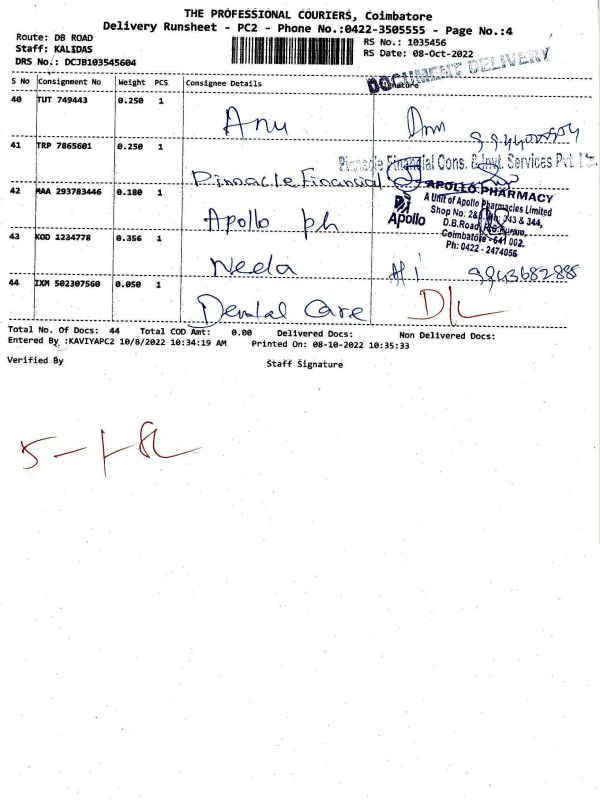 THE PROFESSIONAL COURIERS, Coimbatore
Delivery Runsheet - PC2 - Phone No.:0422-3505555 - Page No.:4
Route: DB ROAD
Staff: KALIDAS
DRS No.: DCJB103545604
RS No.: 1035456
RS Date: 08-Oct-2022
DOCUMENT DELIVERY
S No Consignment No Weight PCS Consignee Details
40 TUT 749443 0.250 1 Anu
41 TRP 7865601 0.250 1 Pinnacle Financial
Pinnacle Financial Cons. & Invt. Services Pvt.
42 MAA 293783446 0.180 1 Apollo ph
APOLLO PHARMACY
A Unit of Apollo Pharmacies Limited
Shop No: 343 & 344,
D.B.Road,
Coimbatore - 641 002.
Ph: 0422 - 2474056
Apollo
43 KOD 1234778 0.356 1 Neela 9943682885
44 IXM 502307560 0.050 1 Dental Care D/L
Total No. Of Docs: 44 Total COD Amt: 0.00 Delivered Docs: Non Delivered Docs:
Entered By :KAVIYAPC2 10/8/2022 10:34:19 AM Printed On: 08-10-2022 10:35:33
Verified By Staff Signature